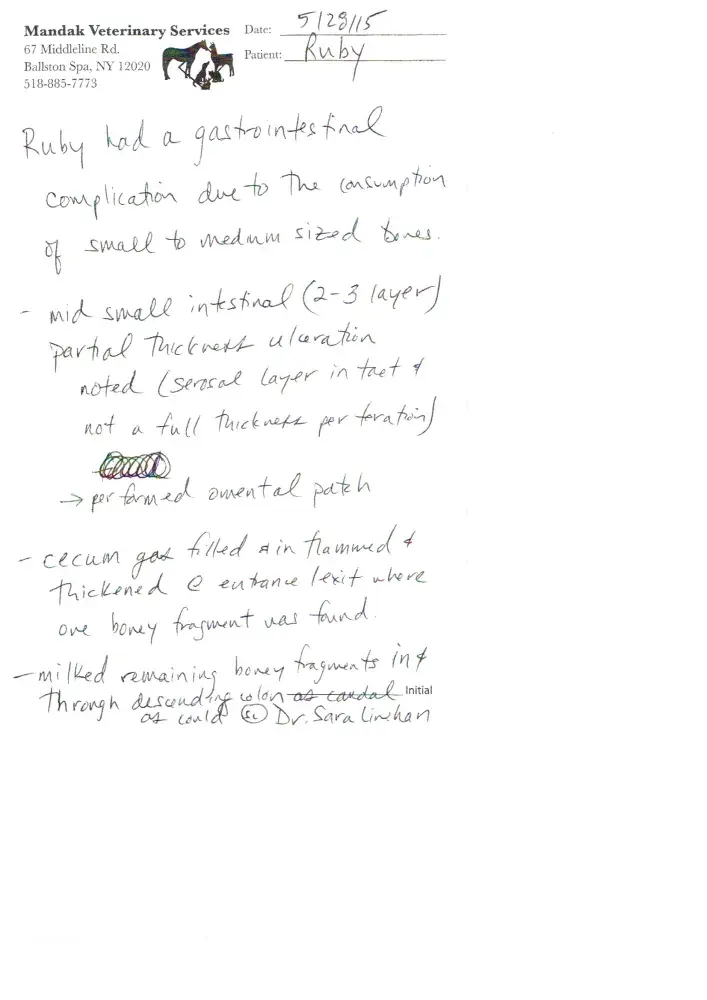 Mandak Veterinary Services
67 Middleline Rd.
Ballston Spa, NY 12020
518-885-7773
Date: 5/28/15
Patient: Ruby
Ruby had a gastrointestinal
complication due to the consumption
of small to medium sized bones.
- mid small intestinal (2-3 layer)
partial thickness ulceration
noted (serosal layer in tact &
not a full thickness perforation)
→ performed omental patch
- cecum gas filled & inflammed &
thickened @ entrance/exit where
one boney fragment was found.
- milked remaining boney fragments in &
through descending colon as caudal Initial
as could SL Dr. Sara Linehan